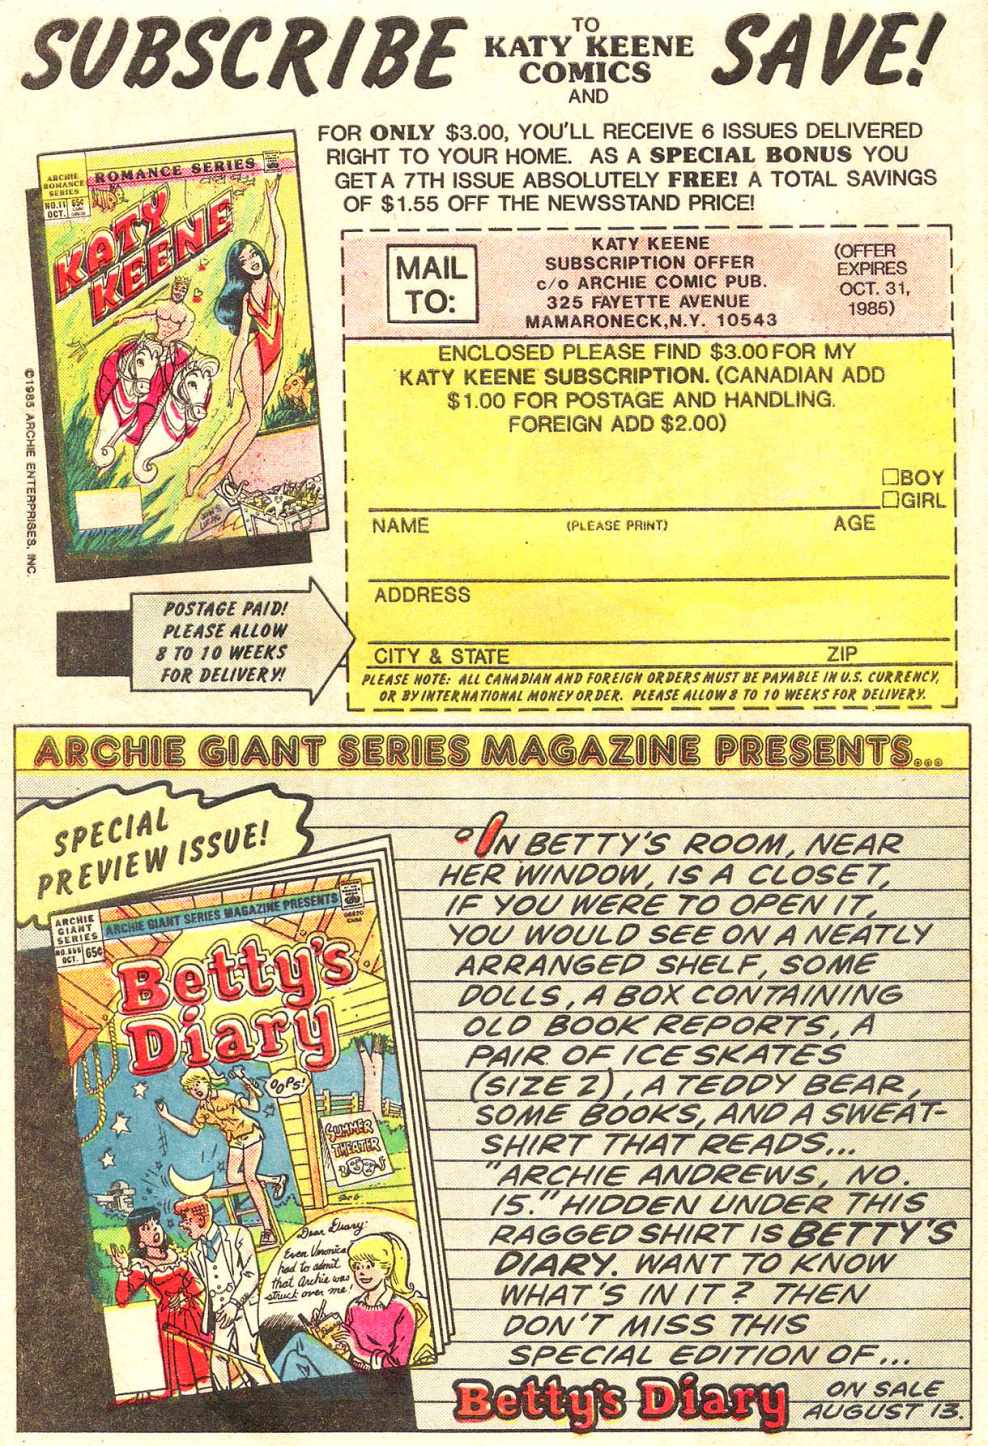 SUBSCRIBE TO KATY KEENE COMICS AND SAVE!
FOR ONLY $3.00, YOU'LL RECEIVE 6 ISSUES DELIVERED
RIGHT TO YOUR HOME. AS A SPECIAL BONUS YOU
GET A 7TH ISSUE ABSOLUTELY FREE! A TOTAL SAVINGS
OF $1.55 OFF THE NEWSSTAND PRICE!
ARCHIE
ROMANCE
SERIES
ROMANCE SERIES
NO.11
OCT.
65¢
KATY
KEENE
©1985 ARCHIE ENTERPRISES, INC.
MAIL
TO:
KATY KEENE
SUBSCRIPTION OFFER
c/o ARCHIE COMIC PUB.
325 FAYETTE AVENUE
MAMARONECK, N.Y. 10543
(OFFER
EXPIRES
OCT. 31,
1985)
ENCLOSED PLEASE FIND $3.00 FOR MY
KATY KEENE SUBSCRIPTION. (CANADIAN ADD
$1.00 FOR POSTAGE AND HANDLING.
FOREIGN ADD $2.00)
BOY
GIRL
NAME (PLEASE PRINT) AGE
ADDRESS
CITY & STATE ZIP
PLEASE NOTE: ALL CANADIAN AND FOREIGN ORDERS MUST BE PAYABLE IN U.S. CURRENCY,
OR BY INTERNATIONAL MONEY ORDER. PLEASE ALLOW 8 TO 10 WEEKS FOR DELIVERY.
POSTAGE PAID!
PLEASE ALLOW
8 TO 10 WEEKS
FOR DELIVERY!
ARCHIE GIANT SERIES MAGAZINE PRESENTS...
SPECIAL
PREVIEW ISSUE!
ARCHIE
GIANT
SERIES
OCT.
65¢
ARCHIE GIANT SERIES MAGAZINE PRESENTS
Betty's
Diary
OOPS!
SUMMER
THEATER
Dear Diary:
Even Veronica
had to admit
that Archie was
struck over me!
"IN BETTY'S ROOM, NEAR
HER WINDOW, IS A CLOSET,
IF YOU WERE TO OPEN IT,
YOU WOULD SEE ON A NEATLY
ARRANGED SHELF, SOME
DOLLS, A BOX CONTAINING
OLD BOOK REPORTS, A
PAIR OF ICE SKATES
(SIZE 2), A TEDDY BEAR,
SOME BOOKS, AND A SWEAT-
SHIRT THAT READS...
"ARCHIE ANDREWS, NO.
15." HIDDEN UNDER THIS
RAGGED SHIRT IS BETTY'S
DIARY. WANT TO KNOW
WHAT'S IN IT? THEN
DON'T MISS THIS
SPECIAL EDITION OF...
Betty's Diary ON SALE
AUGUST 13.